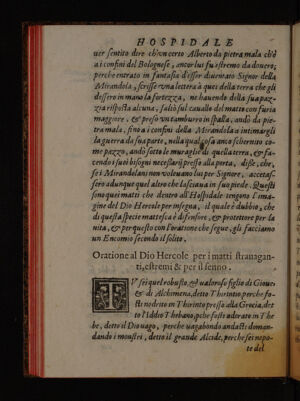 HOSPIDALE
uer sentito dire ch'un certo Alberto da pietra mala ch'è
a i confini del Bolognese, ancor lui fu estremo da douero;
perche entrato in fantasia d'esser diuentato Signor della
Mirandola, scrisse vna lettera à quei della terra che gli
dessero in mano la fortezza, ne hauendo della sua paz-
zia risposta alcuna, saltò sul cauallo del matto con furia
maggiore, & preso vn tamburro in spalla, andò da pie-
tra mala, sino a i confini della Mirandola a intimargli
la guerra da sua parte, nella qual cosa anco schernito co-
me pazzo, andò sotto le muraglie di quella terra, & fa-
cendo i suoi bisogni necessarij presso alla porta, disse, che,
se i Mirandolani non voleuano lui per Signore, accetas-
sero adunque quel altro che lasciaua in suo piede. Questi
sono quei matti che dentro all'Hospidale tengono l'ima-
gine del Dio Hercole per insegna, il quale è dubbio, che
di questa specie mattesca è difensore, & protettore per la
vita, & per questo con l'oratione che segue, gli facciamo
un Encomio secondo il solito.
Oratione al Dio Hercole per i matti strauagan-
ti, estremi & per il senno.
TV sei quel robusto, & valoroso figlio di Gioue,
& di Alchimena, detto Thirintio perche fo-
sti nodrito in Thirinto presso alla Grecia, det-
to l'Iddio Thebano, pche foste adorato in The
be, detto il Dio uago, perche uagabondo andasti doman-
dando i mostri, detto il grande Alcide, perche sei nepo-
te del